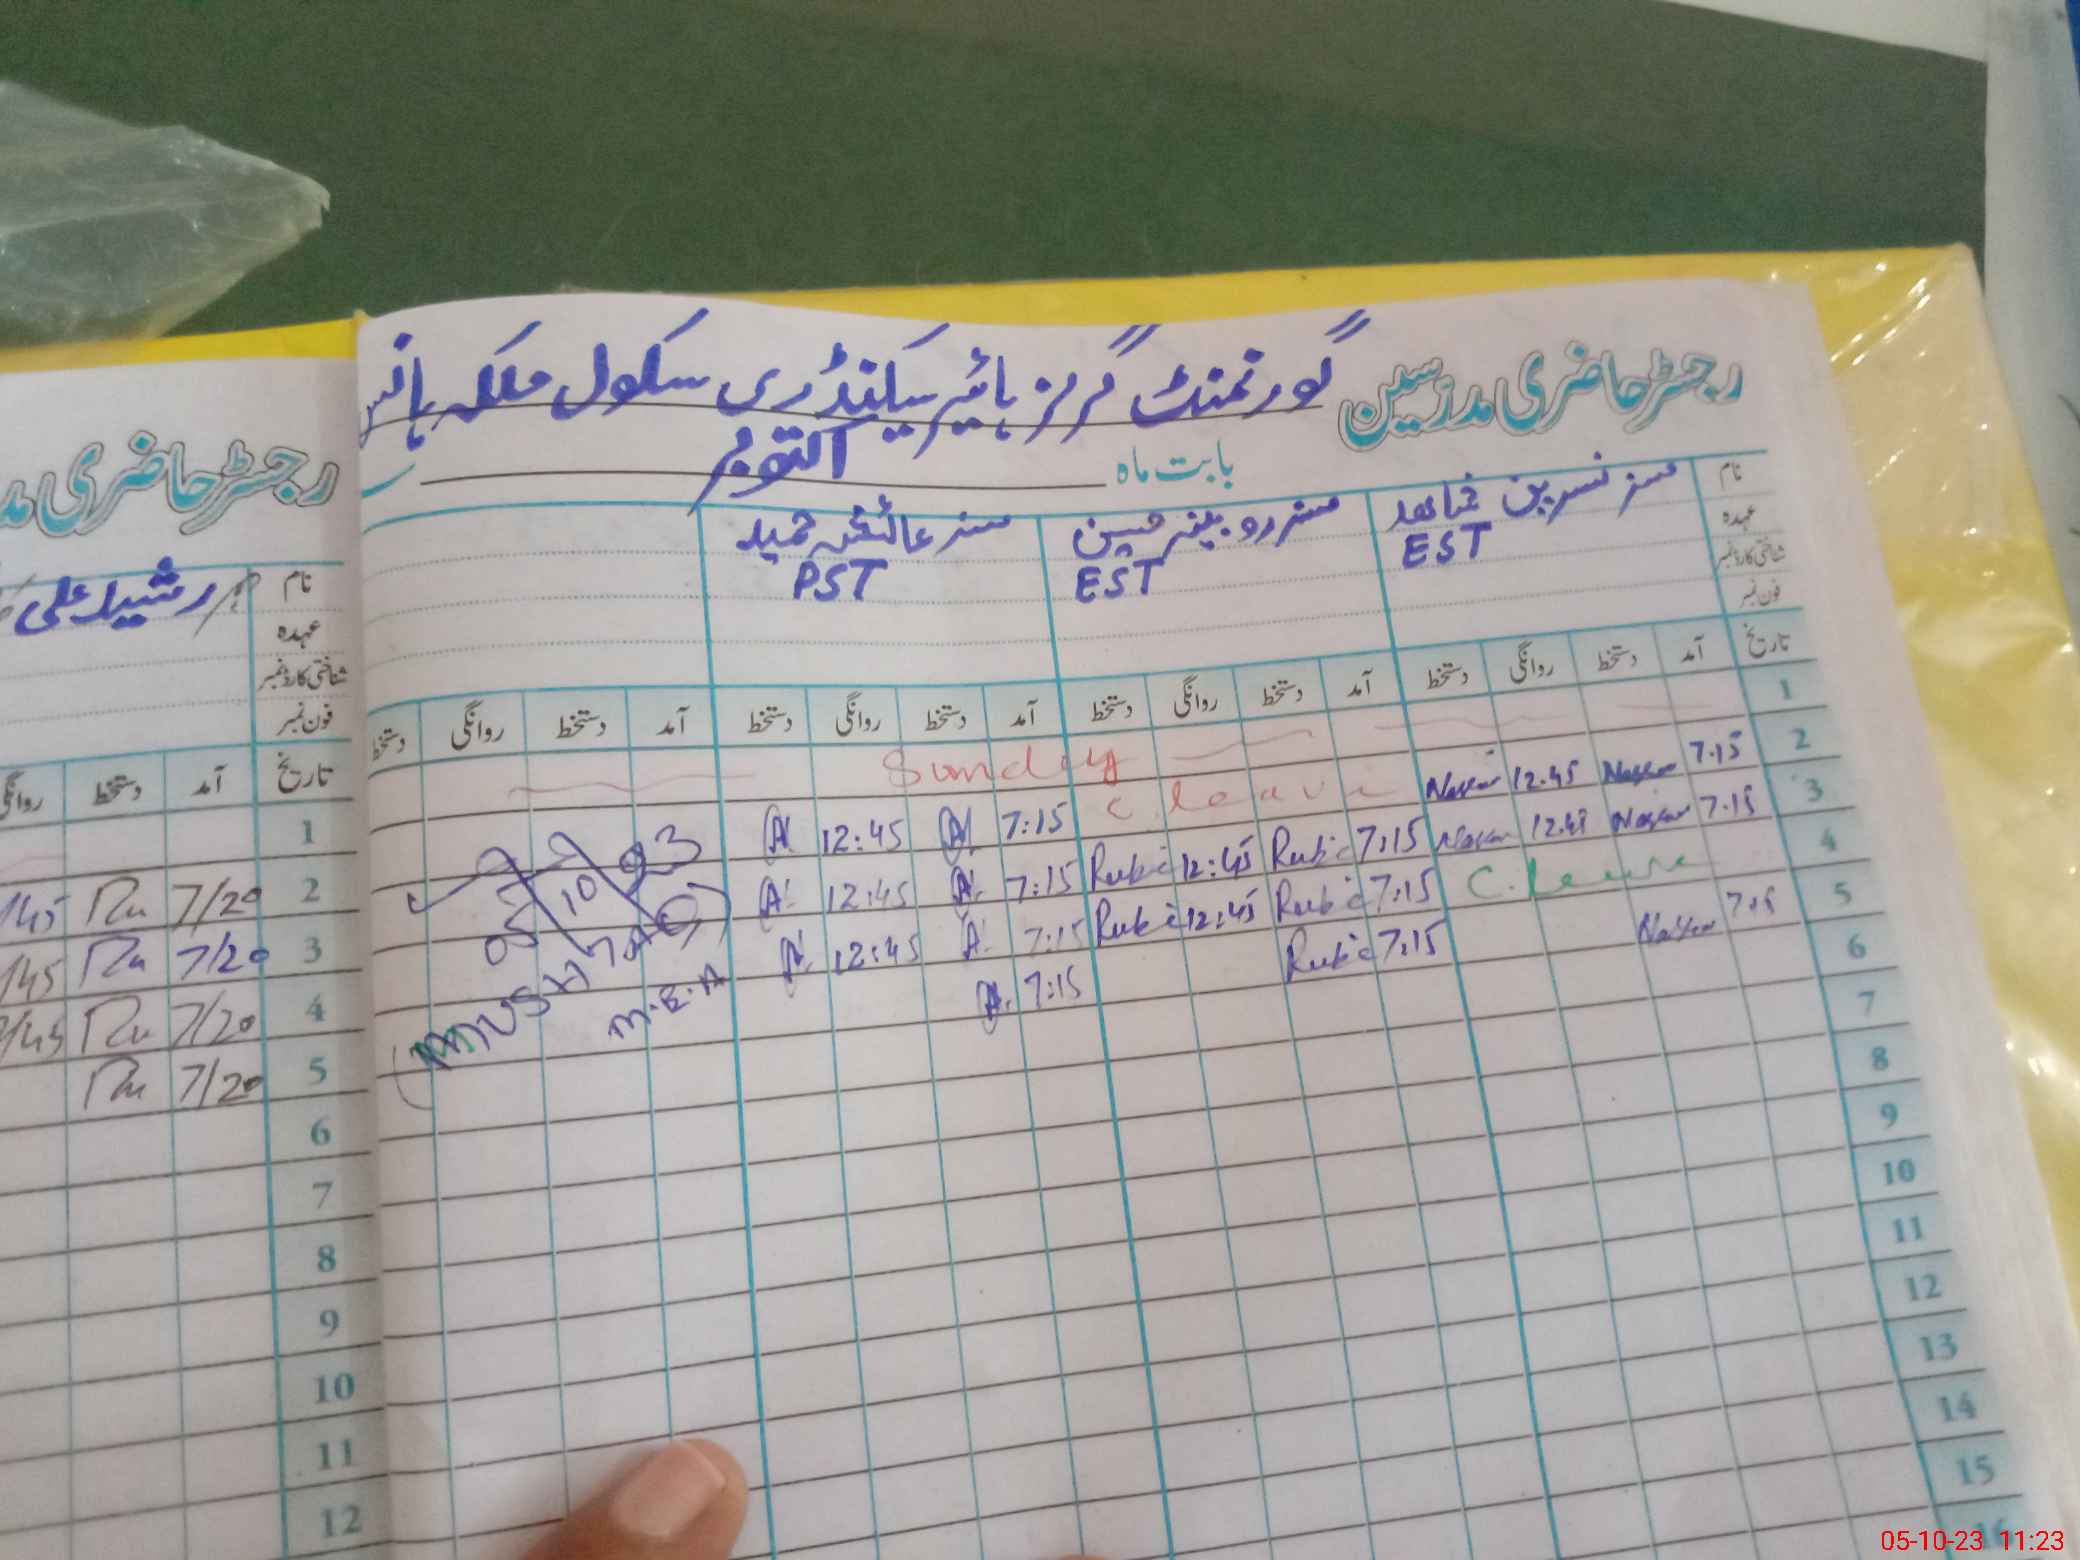 رجسٹر حاضری مدرسین گورنمنٹ گرلز ہائیر سیکنڈری سکول ملکہ ہانس
بابت ماہ اکتوبر
نام مسز نسرین مسز روبینہ حسین مسز عائشہ حمید
عہدہ EST EST PST
شناختی کارڈ نمبر
فون نمبر
تاریخ آمد دستخط روانگی دستخط آمد دستخط روانگی دستخط آمد دستخط روانگی دستخط آمد دستخط روانگی دستخط
1 Sunday
2 7.15 12.45 C. leave 7:15 12:45
3 7.15 12.45 7:15 Rubi 12:45 Rubi 7:15 12:45
4 C. leave 7:15 Rubi 12:45 Rubi 7:15 12:45
5 7.15 7:15 Rubi 7:15
6
7
8
9
10
11
12
13
14
15
16
05/10/23
(MUSHTAQ)
M.E.A
رجسٹر حاضری مد
نام رشید علی
عہدہ
شناختی کارڈ نمبر
فون نمبر
تاریخ آمد دستخط روانگی
1
2 7/20 Ru /45
3 7/20 Ru /45
4 7/20 Ru /45
5 7/20 Ru
6
7
8
9
10
11
12
05-10-23 11:23